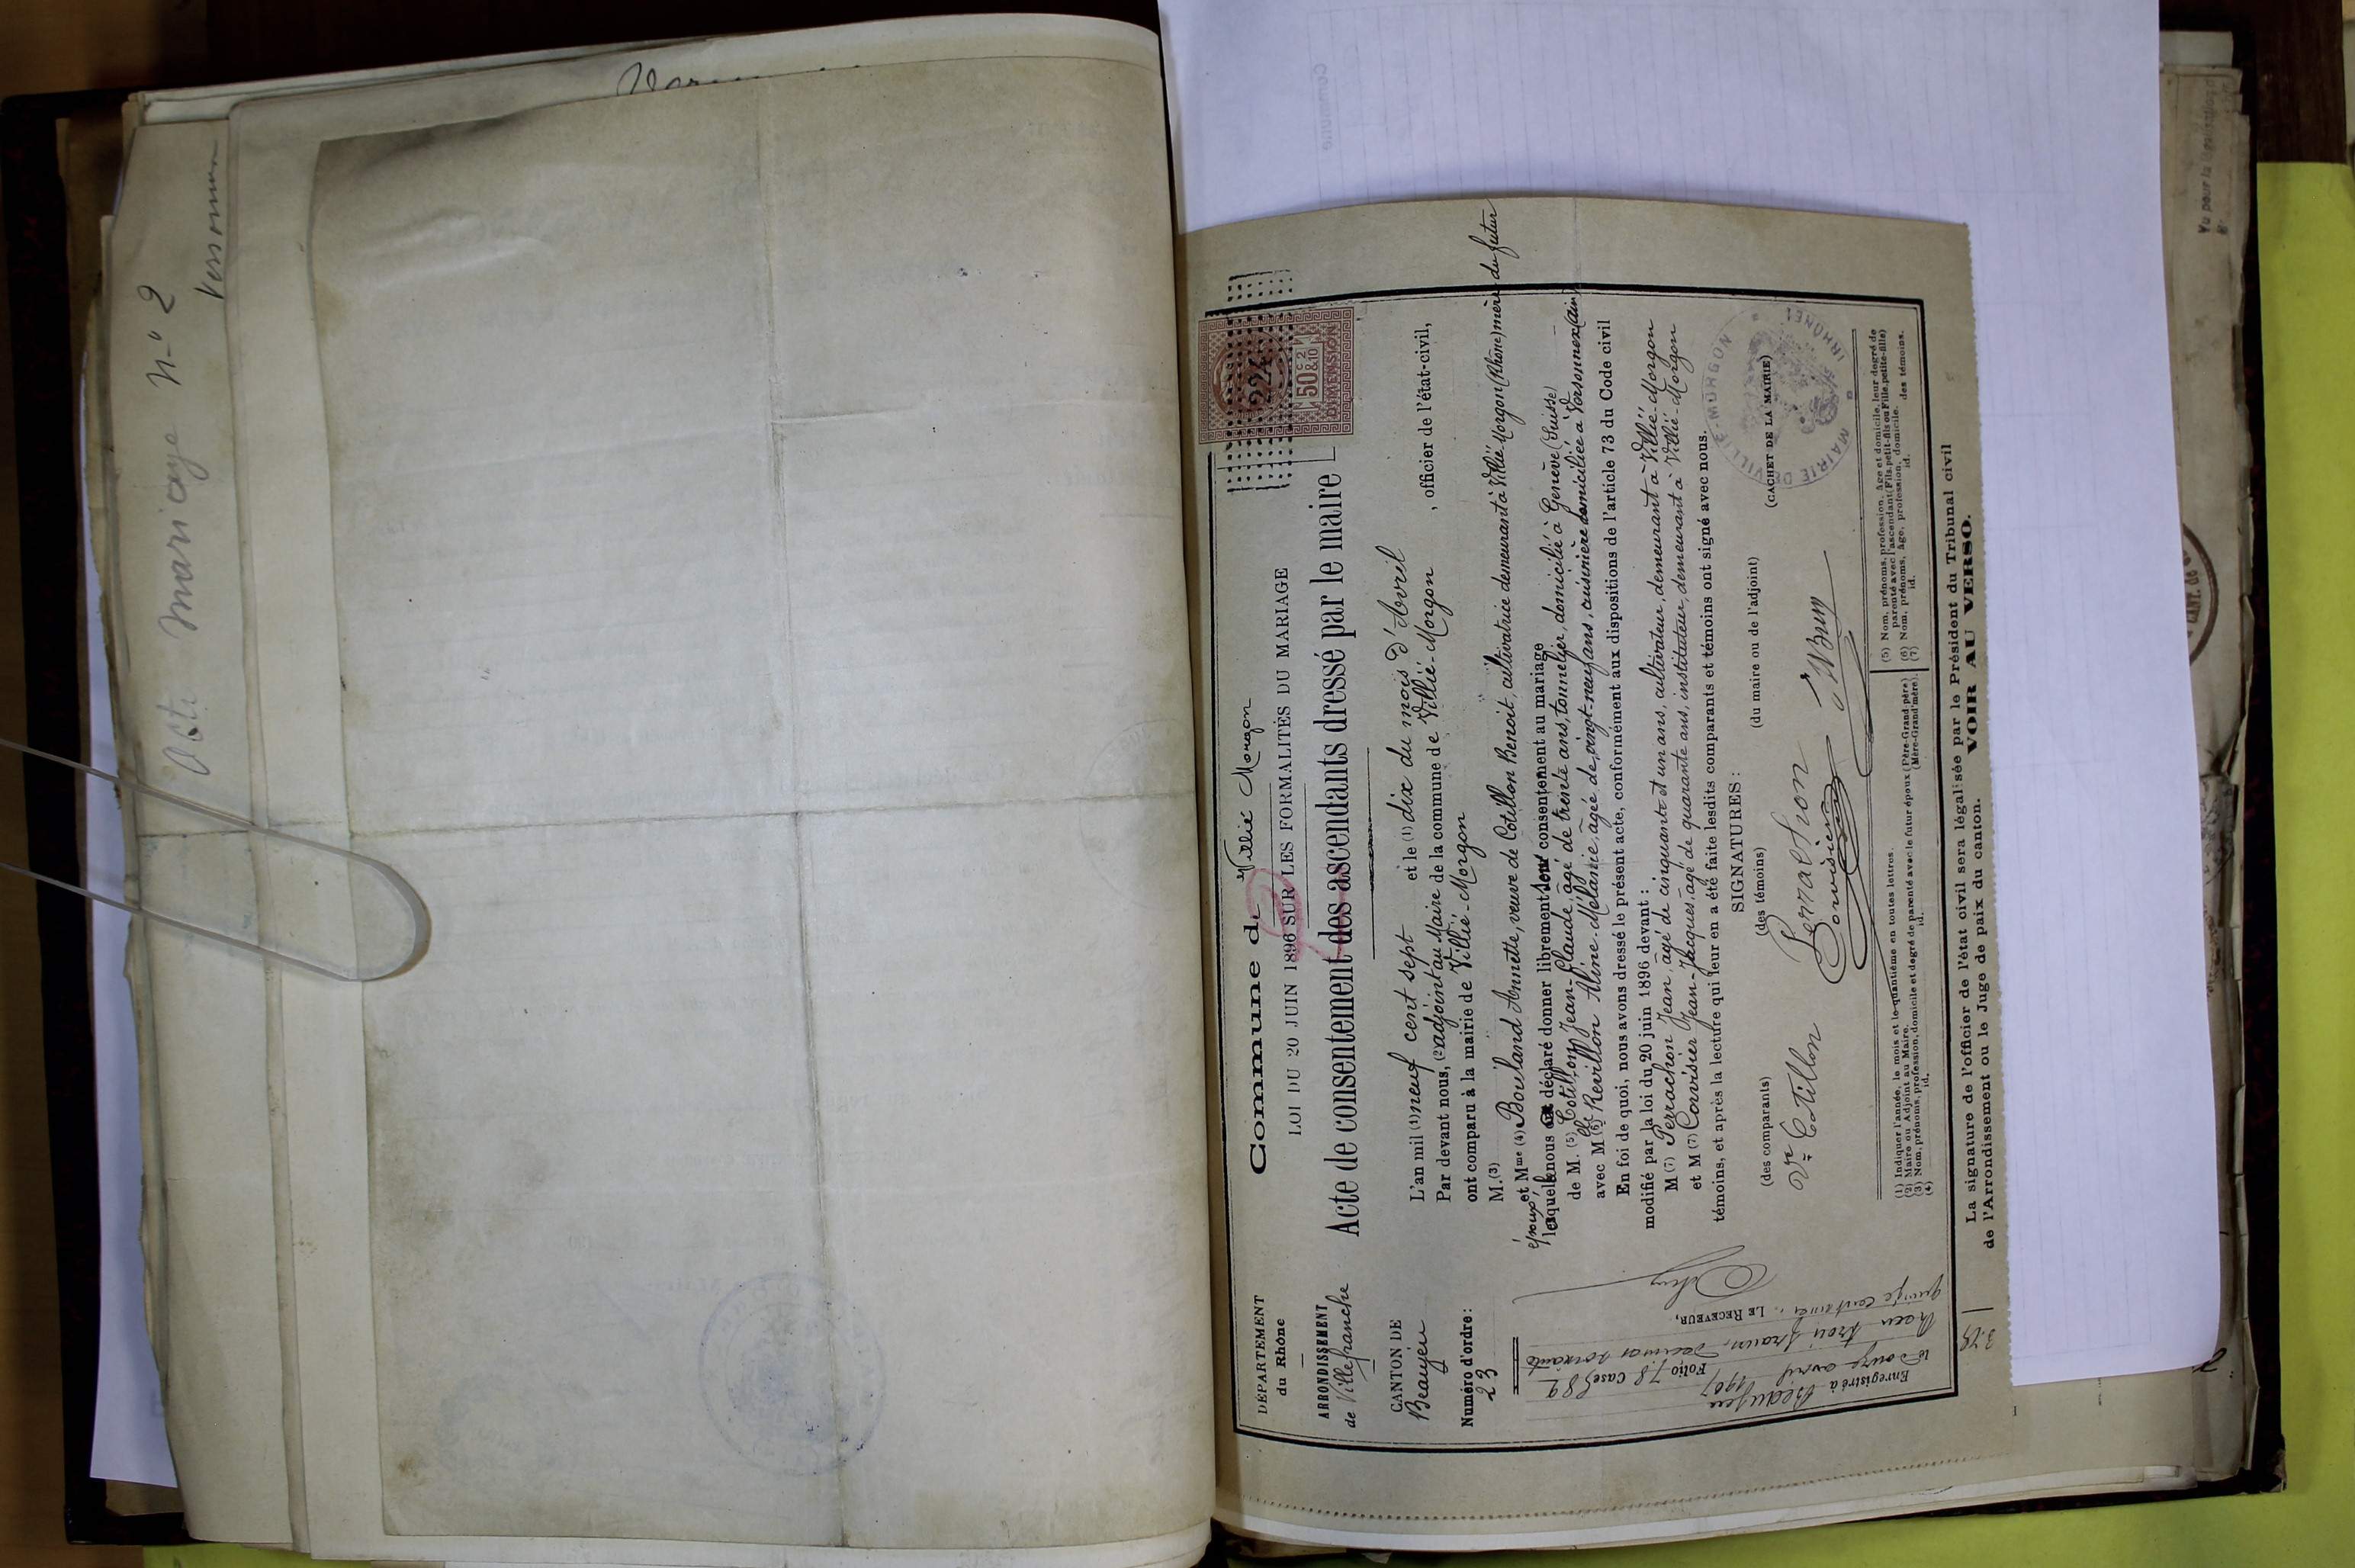 Acte mariage N° 2
Versonnex
Commune de Villié Morgon
LOI DU 20 JUIN 1896 SUR LES FORMALITÉS DU MARIAGE
Acte de consentement des ascendants dressé par le maire
DÉPARTEMENT
du Rhône
ARRONDISSEMENT
de Villefranche
CANTON DE
Beaujeu
Numéro d'ordre:
23
224
50c
2/10
DIMENSION
L'an mil (1) neuf cent sept et le (1) dix du mois d'Avril
Par devant nous, (2) adjoint au Maire de la commune de Villié-Morgon, officier de l'état-civil,
ont comparu à la mairie de Villié-Morgon
M. (3)
et Mme (4) Bouland Annette, veuve de Cotillon Benoit, cultivatrice demeurant à Villié Morgon (Rhône) mère du futur
époux
lesquels nous ont déclaré donner librement son consentement au mariage
de M. (5) Cotillon Jean-Claude, âgé de trente ans, tonnelier, domicilié à Genève (Suisse)
avec M (6) elle Revillon Aline-Mélanie, âgée de vingt-neuf ans, cuisinière domiciliée à Versonnex (Ain)
En foi de quoi, nous avons dressé le présent acte, conformément aux dispositions de l'article 73 du Code civil
modifié par la loi du 20 juin 1896 devant :
M (7) Perrachon Jean, âgé de cinquante et un ans, cultivateur, demeurant à Villié-Morgon
et M (7) Corvisier Jean-Jacques, âgé de quarante ans, instituteur, demeurant à Villié-Morgon
témoins, et après la lecture qui leur en a été faite lesdits comparants et témoins ont signé avec nous.
SIGNATURES :
(des comparants)
(des témoins)
(du maire ou de l'adjoint)
(CACHET DE LA MAIRIE)
Vve Cotillon
Perrachon
Corvisier
MAIRIE DE VILLIÉ-MORGON
(RHÔNE)
(1) Indiquer l'année, le mois et le quantième en toutes lettres.
(2) Maire ou Adjoint au Maire.
(3) Nom, prénoms, profession, domicile et degré de parenté avec le futur époux (Père-Grand père)
(4) id. id. (Mère-Grand'mère).
(5) Nom, prénoms, profession, âge et domicile, leur degré de
parenté avec l'ascendant (Fils, petit-fils ou Fille, petite-fille)
(6) Nom, prénoms, âge, profession, domicile.
(7) id. id. des témoins.
Enregistré à Beaujeu
le Douze avril 1907
Folio 78 Case 889
Reçu trois francs, décimes soixante
quinze centimes.
LE RECEVEUR,
3.75
La signature de l'officier de l'état civil sera légalisée par le Président du Tribunal civil
de l'Arrondissement ou le Juge de paix du canton. VOIR AU VERSO.
Vu pour la légalisation